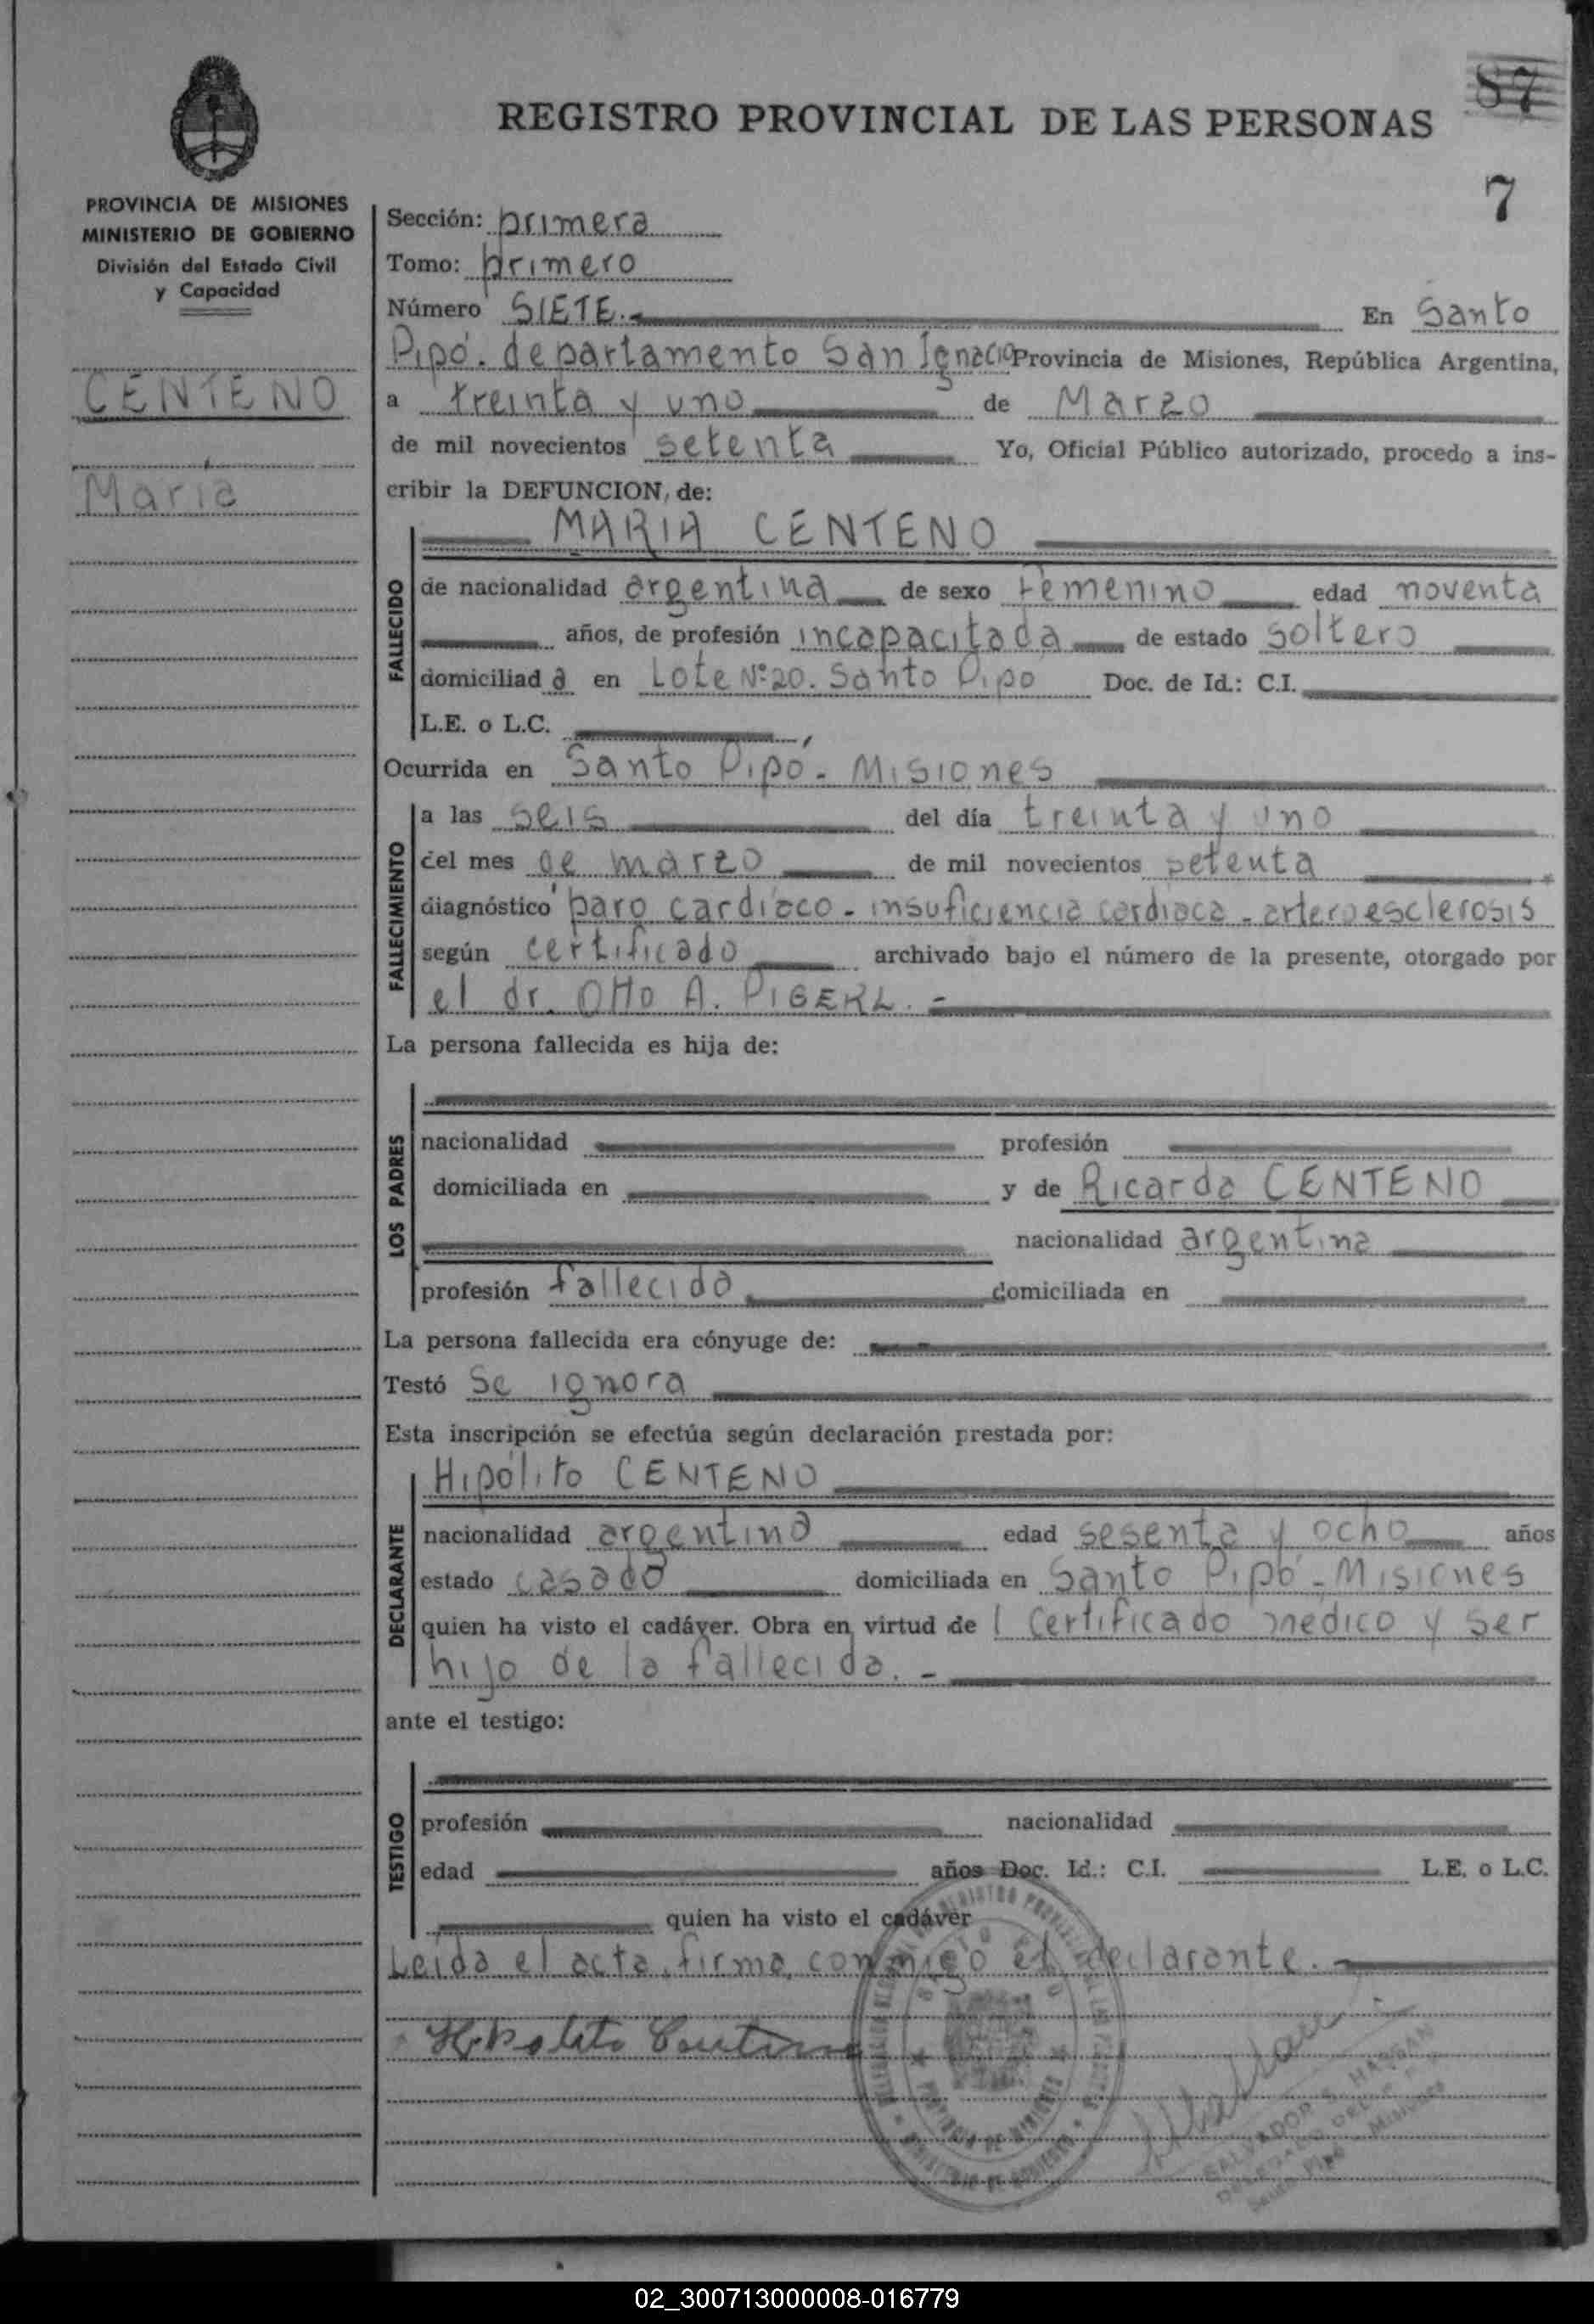 87
REGISTRO PROVINCIAL DE LAS PERSONAS
7
PROVINCIA DE MISIONES
MINISTERIO DE GOBIERNO
División del Estado Civil
y Capacidad
CENTENO
Maria
Sección: primera
Tomo: primero
Número SIETE.- En Santo
Pipó. departamento San Ignacio Provincia de Misiones, República Argentina,
a treinta y uno de Marzo
de mil novecientos setenta Yo, Oficial Público autorizado, procedo a ins-
cribir la DEFUNCION, de:
MARIA CENTENO
FALLECIDO
de nacionalidad argentina de sexo femenino edad noventa
años, de profesión incapacitada de estado soltero
domiciliad a en Lote Nº 20. Santo Pipó Doc. de Id.: C.I.
L.E. o L.C.
Ocurrida en Santo Pipó - Misiones
FALLECIMIENTO
a las seis del día treinta y uno
del mes de marzo de mil novecientos setenta
diagnóstico paro cardiaco - insuficiencia cardiaca - arteroesclerosis
según certificado archivado bajo el número de la presente, otorgado por
el dr. Otto A. PIGERL. -
La persona fallecida es hija de:
LOS PADRES
nacionalidad profesión
domiciliada en y de Ricarda CENTENO
nacionalidad argentina
profesión fallecida domiciliada en
La persona fallecida era cónyuge de:
Testó Se ignora
Esta inscripción se efectúa según declaración prestada por:
Hipólito CENTENO
DECLARANTE
nacionalidad argentina edad sesenta y ocho años
estado casado domiciliada en Santo Pipó - Misiones
quien ha visto el cadáver. Obra en virtud de l Certificado médico y ser
hijo de la fallecida. -
ante el testigo:
TESTIGO
profesión nacionalidad
edad años Doc. Id.: C.I. L.E. o L.C.
quien ha visto el cadáver
Leída el acta, firma conmigo el declarante. -
Hipolito Centeno
PROVINCIA DE MISIONES
MINISTERIO DE GOBIERNO
SALVADOR S. HASSAN
Santo Pipó - Misiones
02_300713000008-016779